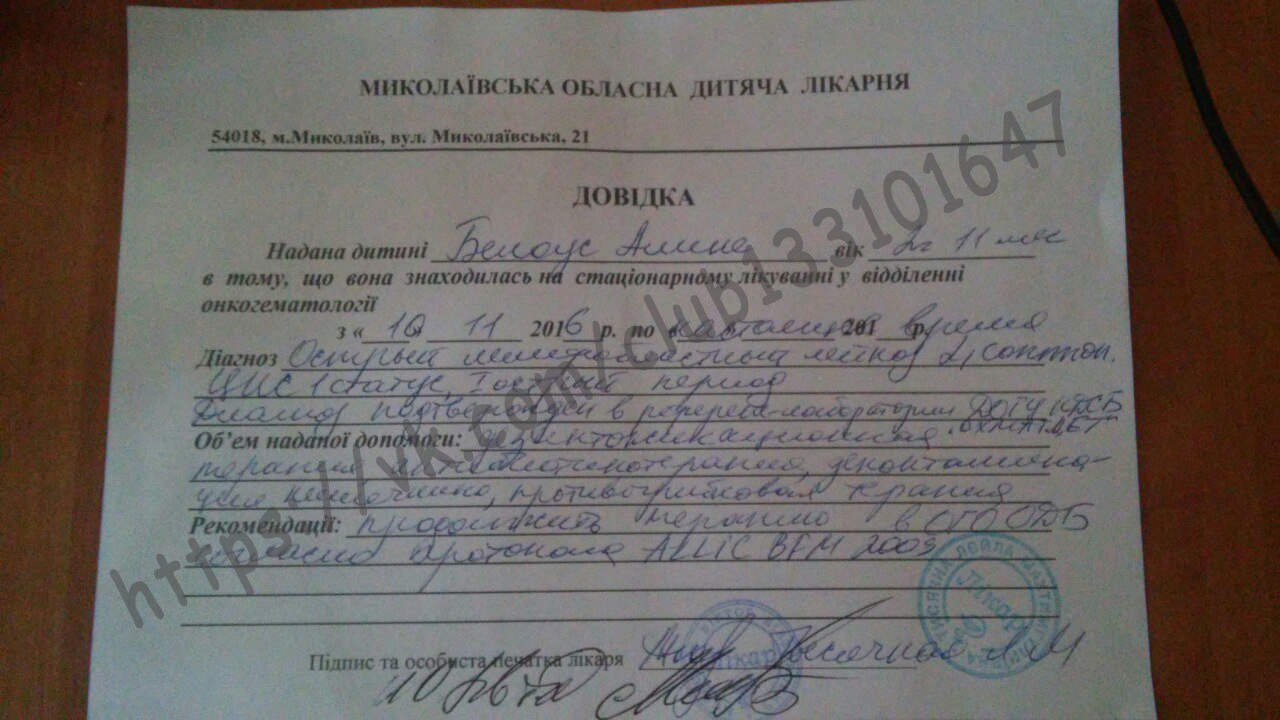 МИКОЛАЇВСЬКА ОБЛАСНА ДИТЯЧА ЛІКАРНЯ
54018, м.Миколаїв, вул. Миколаївська, 21
ДОВІДКА
Надана дитині Белоус Алина вік 2г 11 мес
в тому, що вона знаходилась на стаціонарному лікуванні у відділенні
онкогематології
з « 10 11 2016 р. по « настоящее 201 время р.
Діагноз Острый лимфобластный лейкоз L1 common.
ЦНС 1 статус, I острый период
Диагноз подтвержден в референс-лаборатории ОХМАТДЕТ
Об'єм наданої допомоги: дезинтоксикационная
терапия, антибиотикотерапия, деконтамина-
ция кишечника, противогрибковая терапия
Рекомендації: продолжить терапию в
согласно протокола ALLIC BFM 2009
Підпис та особиста печатка лікаря
Лікар
https://vk.com/club133101647